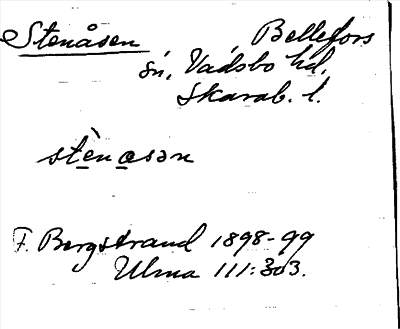 Stenåsen Bellefors
sn, Vadsbo hd,
Skarab. l.
stènåsən
F. Bergstrand 1898-99
Ulma 111:303.